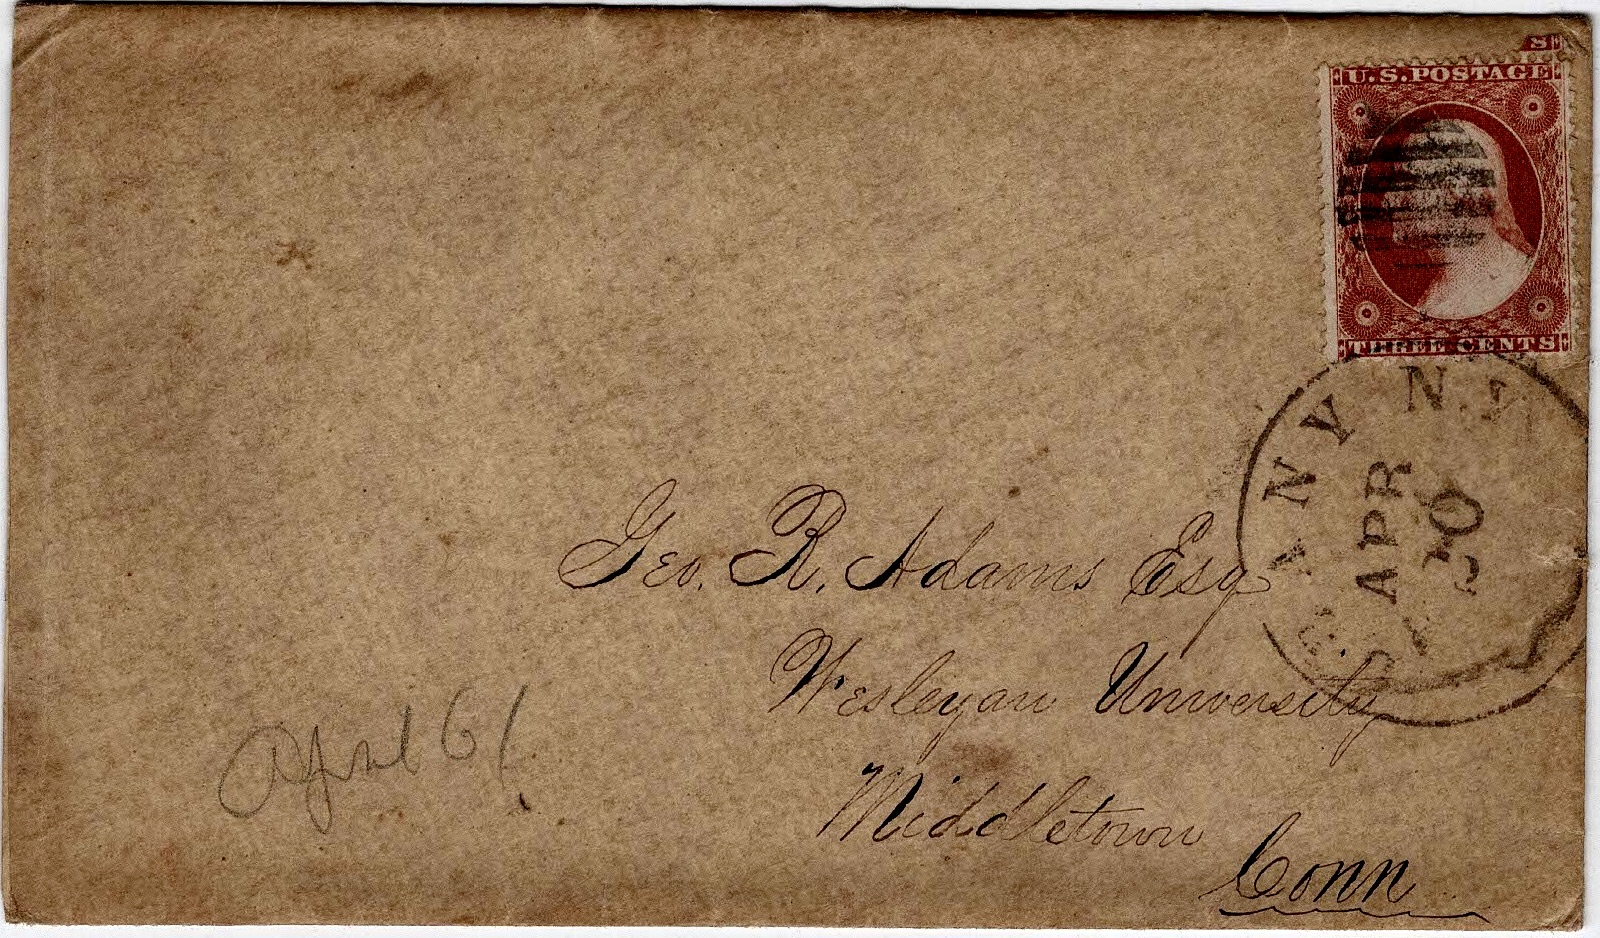 S
U.S.POSTAGE
THREE CENTS
ANY N.Y
APR
20
Geo. R. Adams Esq
Wesleyan University
Middletown
Conn
April 61